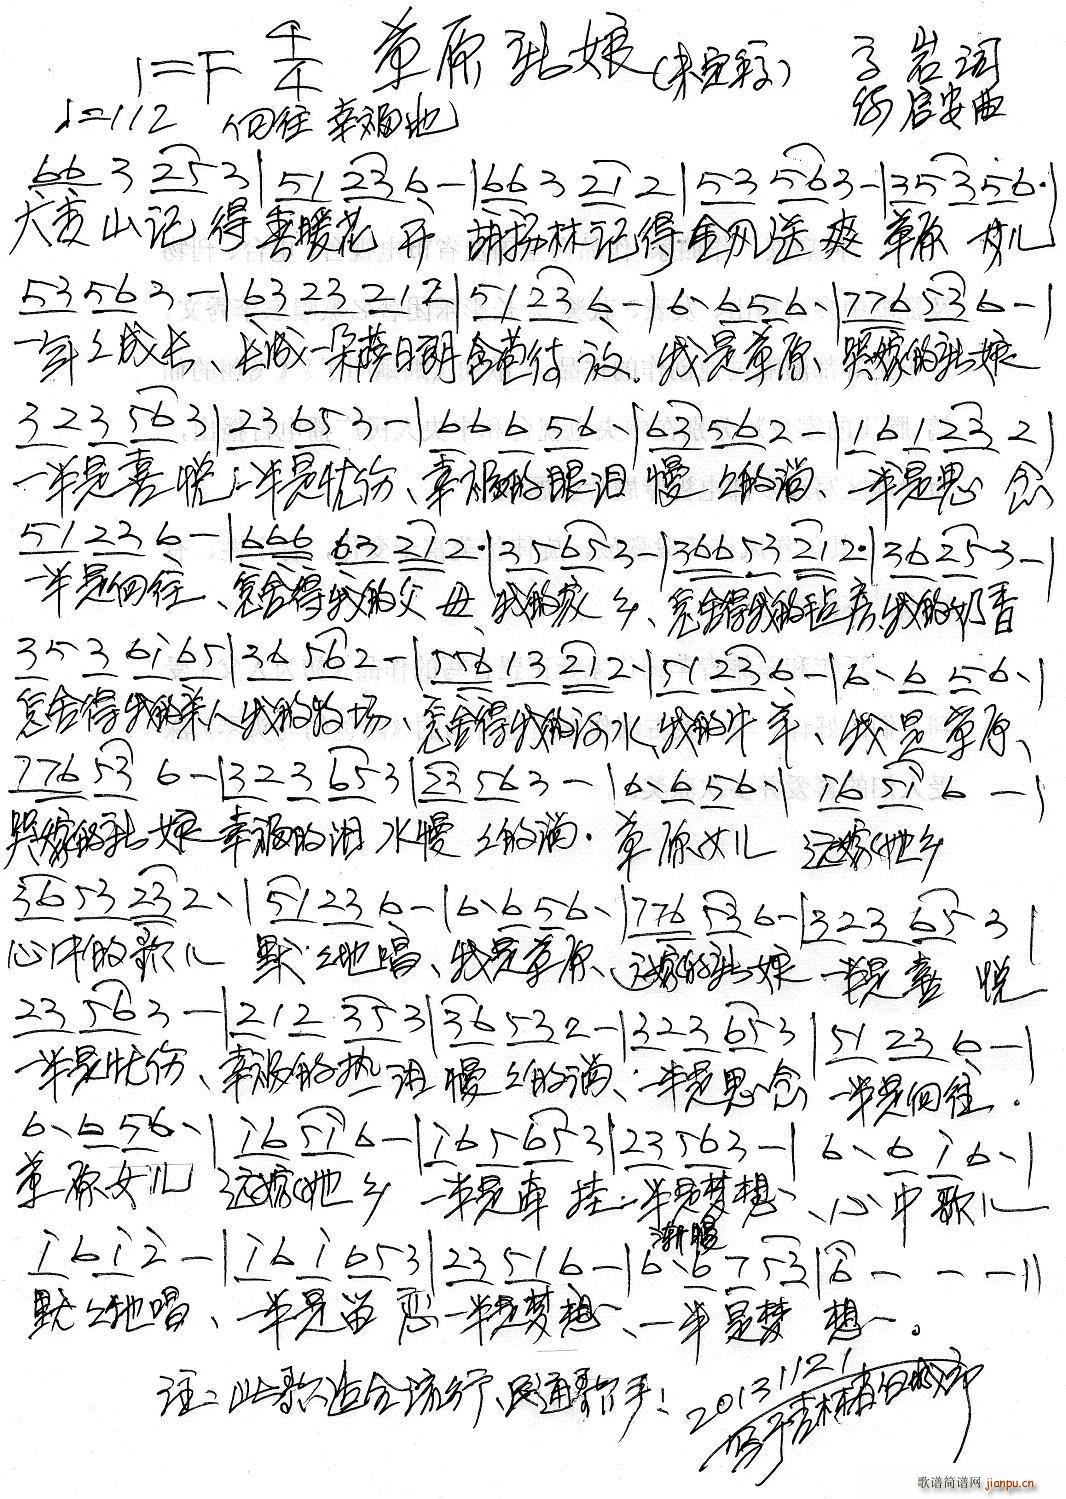 1=F 4/4 草原新娘(未定稿) 子岩词
♩=112 (向往 幸福地) 启安曲
66 3 253|5123 6-|663 212|53 563-|35356·|
大青山记得春暖花开 胡杨林记得金风送爽 草原女儿
53563-|6323212|51236-|6·656·|776536-|
一年々成长、长成一朵萨日朗含苞待放.我是草原、哭嫁的新娘
323563|23653-|66656·|63562-|161232|
一半是喜悦:一半是忧伤、幸福的眼泪慢々的淌、一半是思念
51236-|666 63 212·|35653-|36653 212·|36253-|
一半是向往、怎舍得我的父母 我的故乡、怎舍得我的毡房、我的奶香
353 6165|36562-|556 13 212·|51236-|6·656·|
怎舍得我的亲人我的牧场、怎舍得我的河水、我的牛羊、我是草原、
77653 6-|323653|23563-|6·656·|16516-|
哭嫁的新娘 幸福的泪水慢々的淌.草原女儿 远嫁他乡
3653232·|51236-|6·656·|776536-|323653|
心中的歌儿 默々地唱、我是草原、远嫁的新娘 一半是喜悦
23563-|212353|36532-|323653|51236-|
一半是忧伤、幸福的热泪慢々的淌、一半是思念 一半是向往.
6·656·|16516-|165653|23563-|6·616·|
草原女儿 远嫁他乡 一半是牵挂:一半是梦想、心中歌儿
渐慢
1612-|161653|23516-|6·6753|6---||
默々地唱、一半是留恋一半是梦想、一半是梦想。
注:此歌适合流行、民通歌手! 20131121
写于吉林省白城市
歌谱简谱网 jianpu.cn